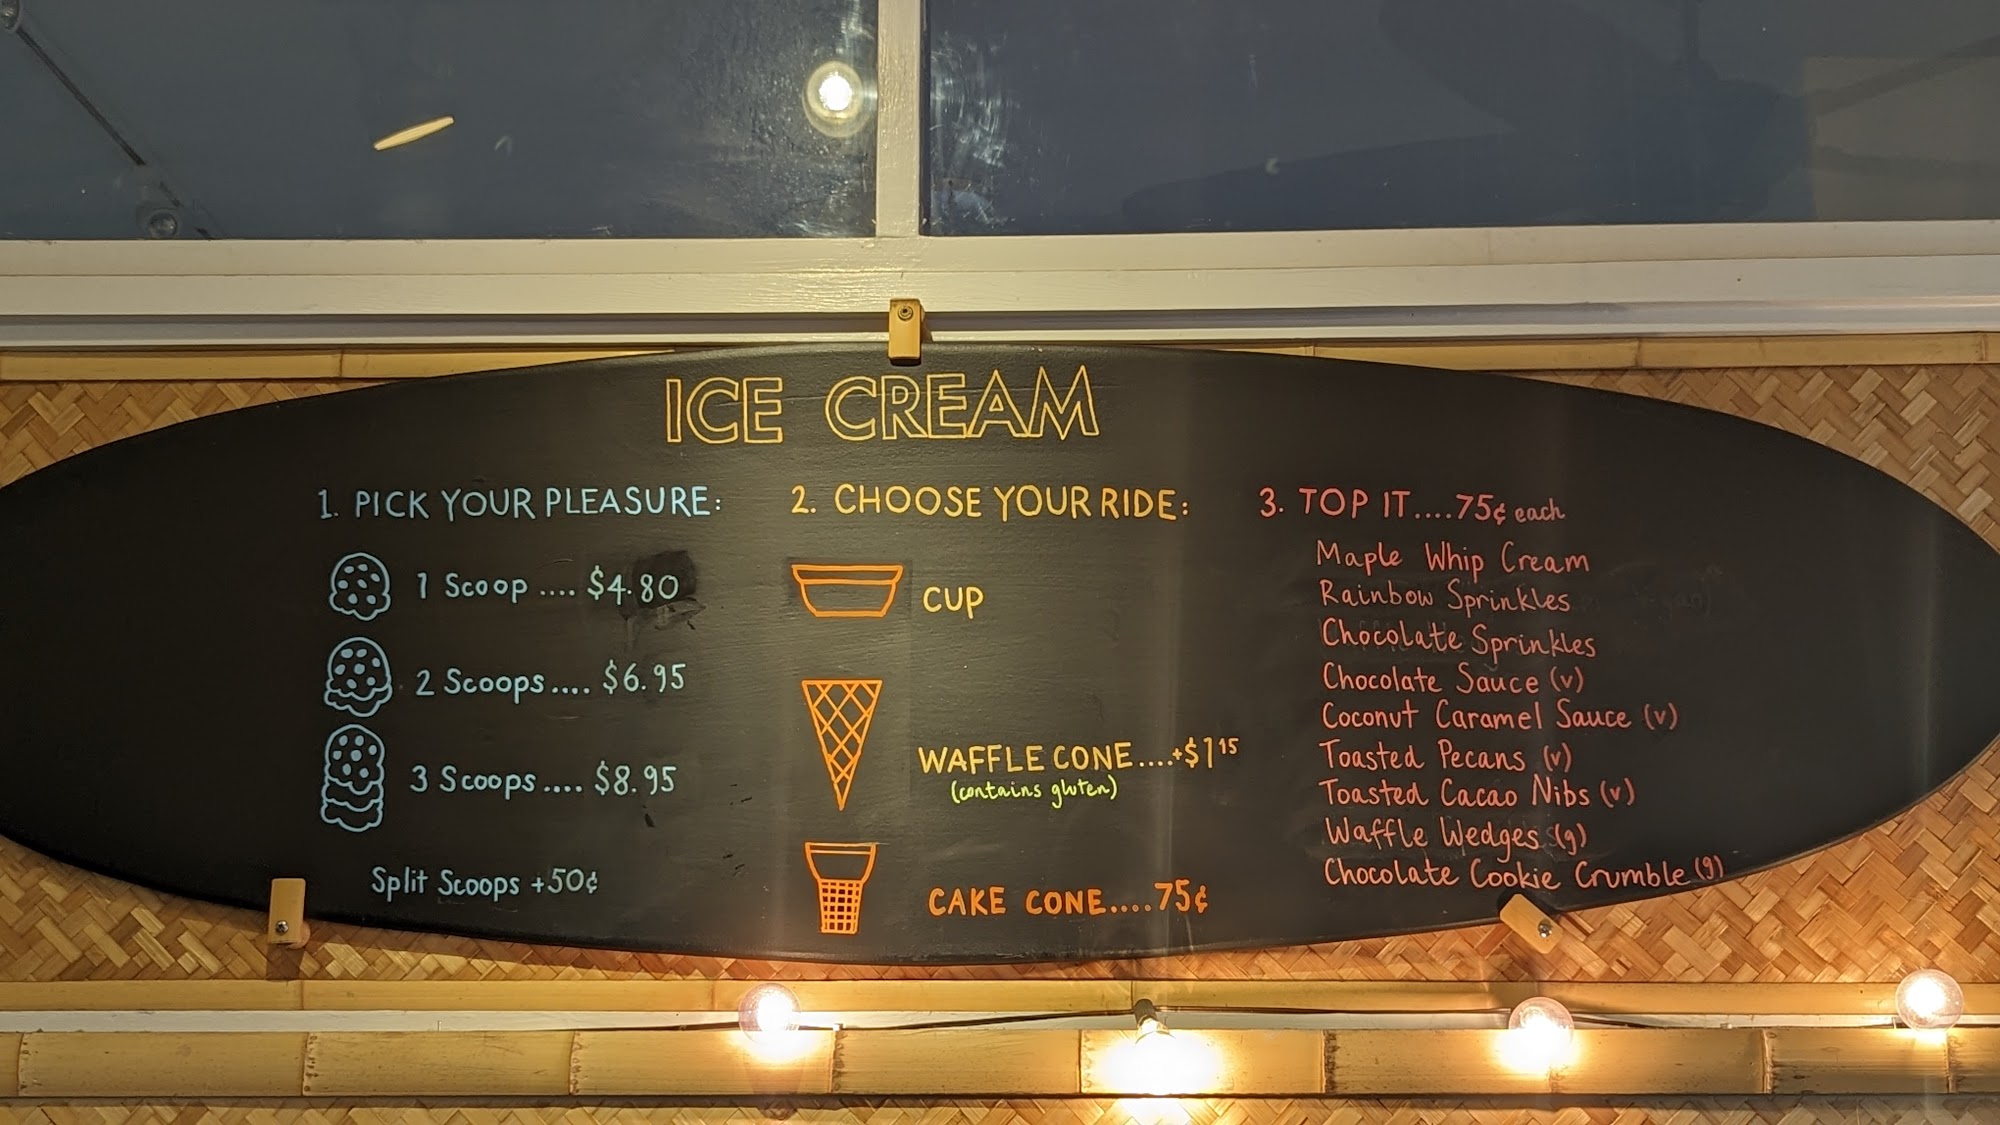 ICE CREAM
1. PICK YOUR PLEASURE:
1 Scoop .... $4.80
2 Scoops .... $6.95
3 Scoops .... $8.95
Split Scoops +50¢
2. CHOOSE YOUR RIDE:
CUP
WAFFLE CONE....+$1 15
(contains gluten)
CAKE CONE....75¢
3. TOP IT....75¢ each
Maple Whip Cream
Rainbow Sprinkles
Chocolate Sprinkles
Chocolate Sauce (v)
Coconut Caramel Sauce (v)
Toasted Pecans (v)
Toasted Cacao Nibs (v)
Waffle Wedges (g)
Chocolate Cookie Crumble (g)